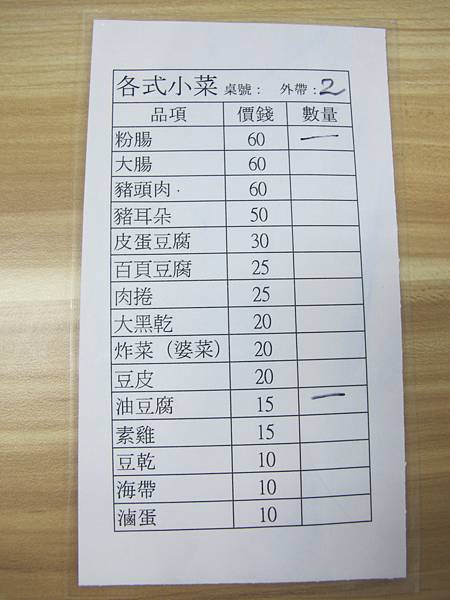 各式小菜 桌號： 外帶：2
品項 價錢 數量
粉腸 60 一
大腸 60
豬頭肉． 60
豬耳朵 50
皮蛋豆腐 30
百頁豆腐 25
肉捲 25
大黑乾 20
炸菜（婆菜） 20
豆皮 20
油豆腐 15 一
素雞 15
豆乾 10
海帶 10
滷蛋 10